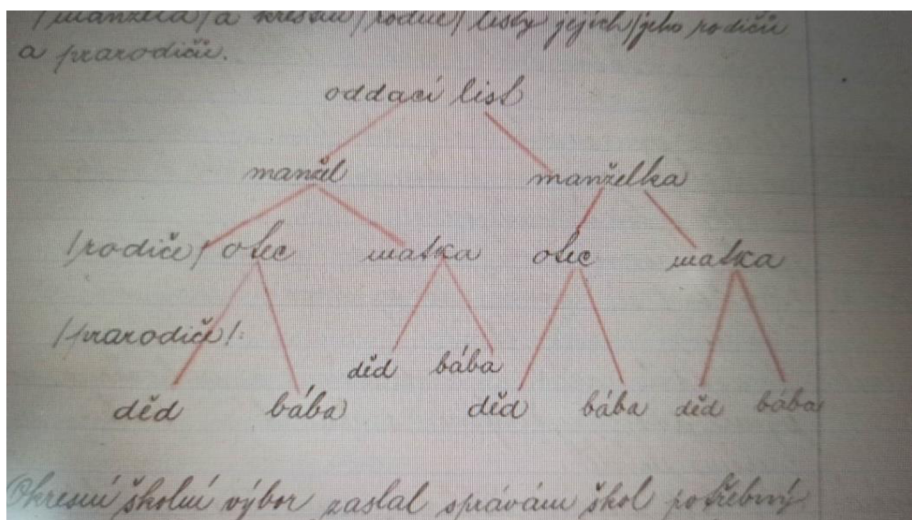 /manžela/ a křestní /rodné/ listy jejích/jeho rodičů
a prarodičů.
oddací list
manžel manželka
/rodiče/ otec matka otec matka
/prarodiče/:
děd bába
děd bába děd bába děd bába
Okresní školní výbor zaslal správám škol potřebný